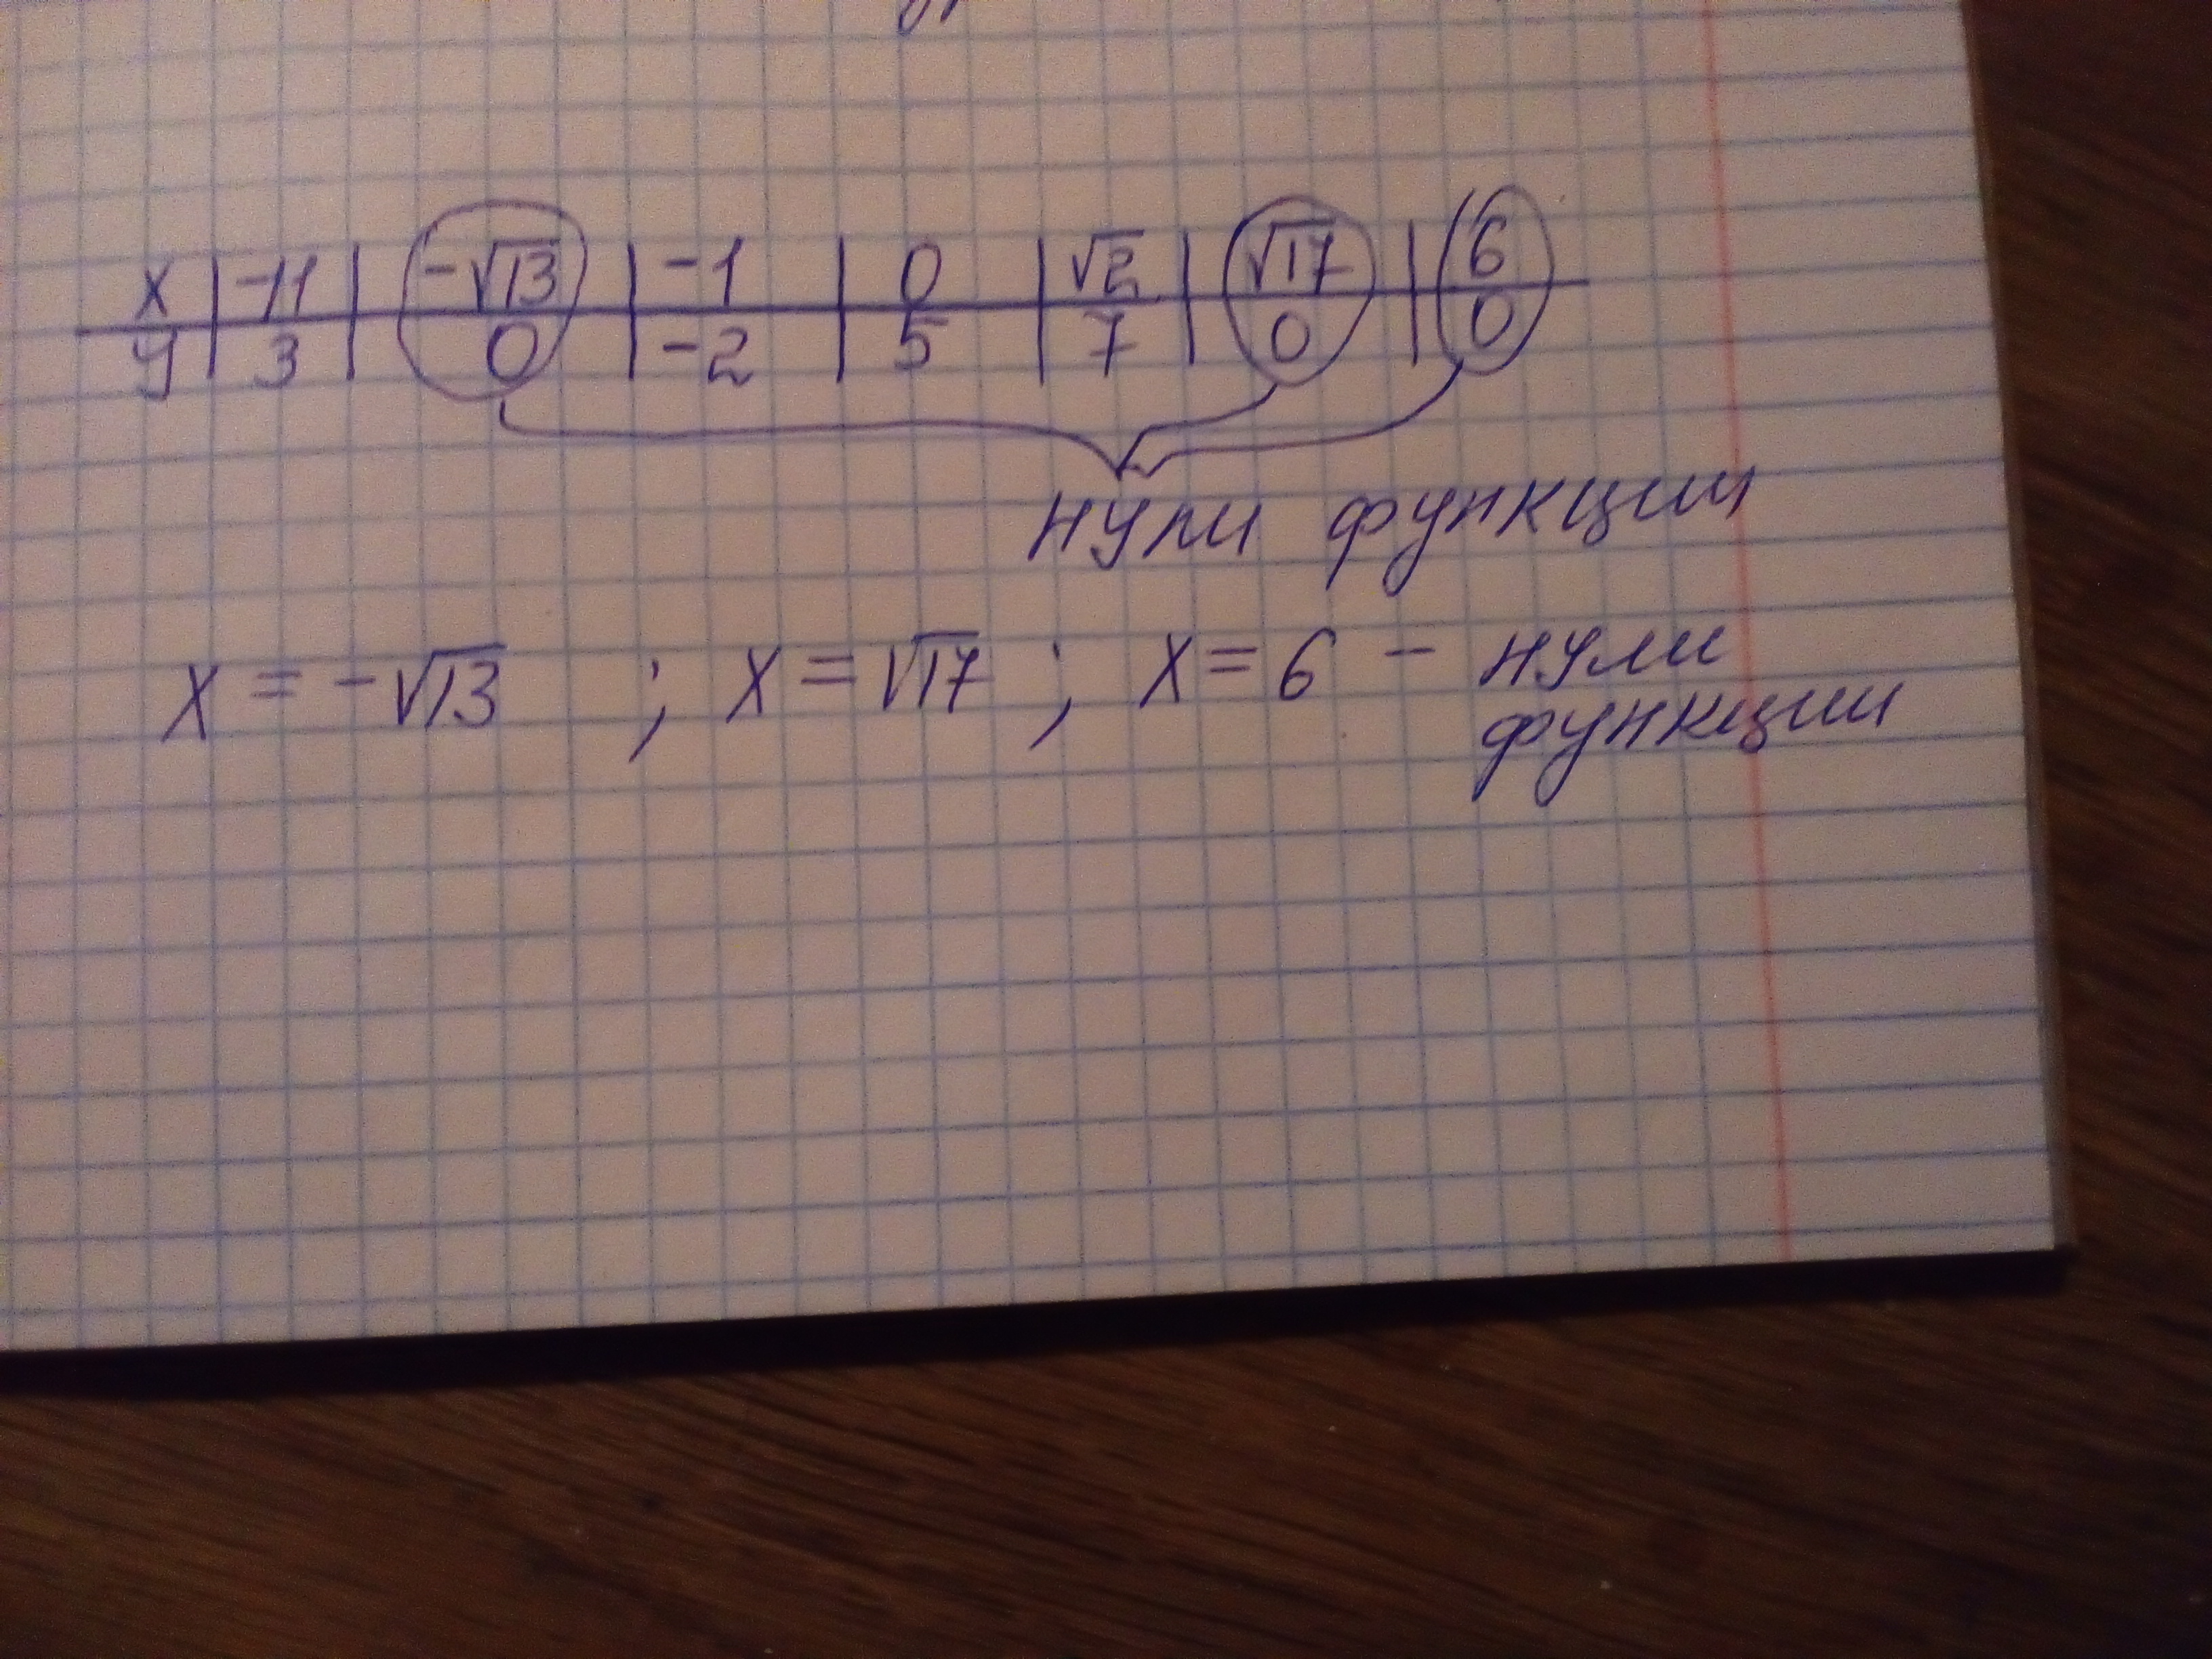 x | -11 | -√13 | -1 | 0 | √2 | √17 | 6
y | 3 | 0 | -2 | 5 | 7 | 0 | 0
нули функции
x = -√13 ; x = √17 ; x = 6 - нули
функции